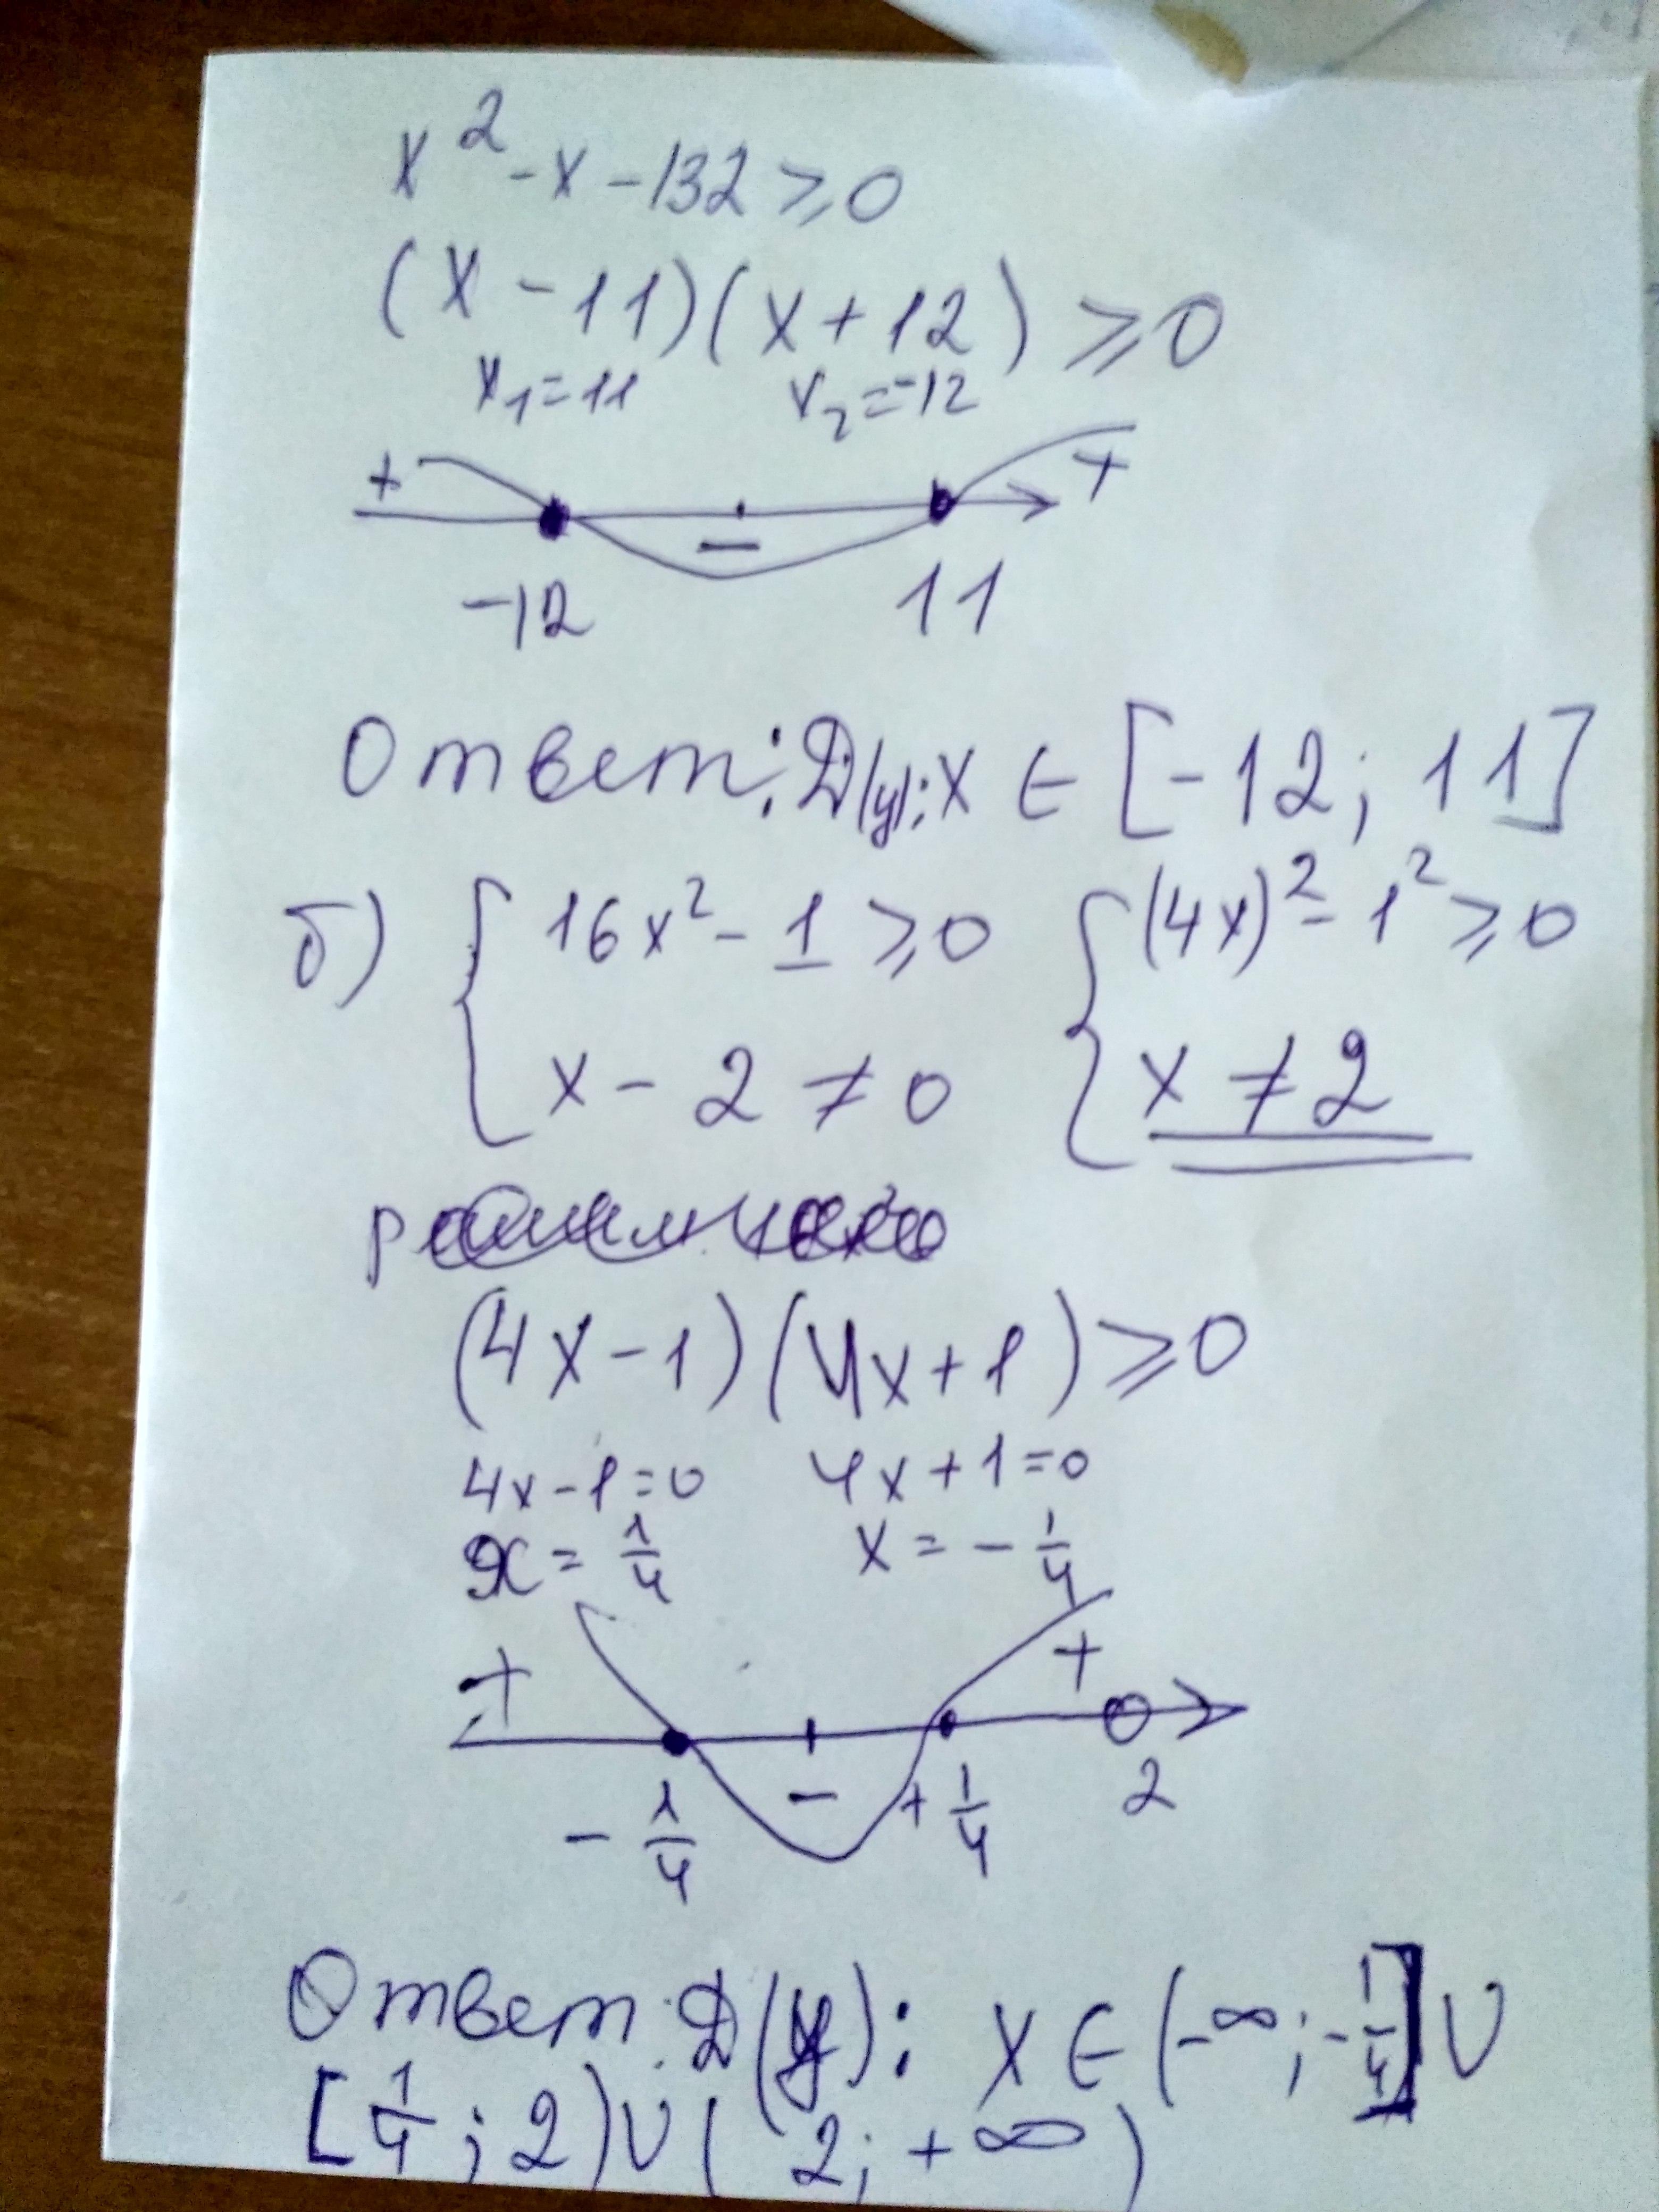 x² - x - 132 ⩾ 0
(x - 11)(x + 12) ⩾ 0
x₁ = 11 x₂ = -12
+ - +
-12 11
Ответ: D(y): x ∈ [-12; 11]
б) { 16x² - 1 ⩾ 0 { (4x)² - 1² ⩾ 0
x - 2 ≠ 0 x ≠ 2
(4x - 1)(4x + 1) ⩾ 0
4x - 1 = 0 4x + 1 = 0
x = 1/4 x = - 1/4
+ - +
- 1/4 + 1/4 2
Ответ: D(y): x ∈ (-∞; -1/4] ∪
[1/4; 2) ∪ (2; +∞)